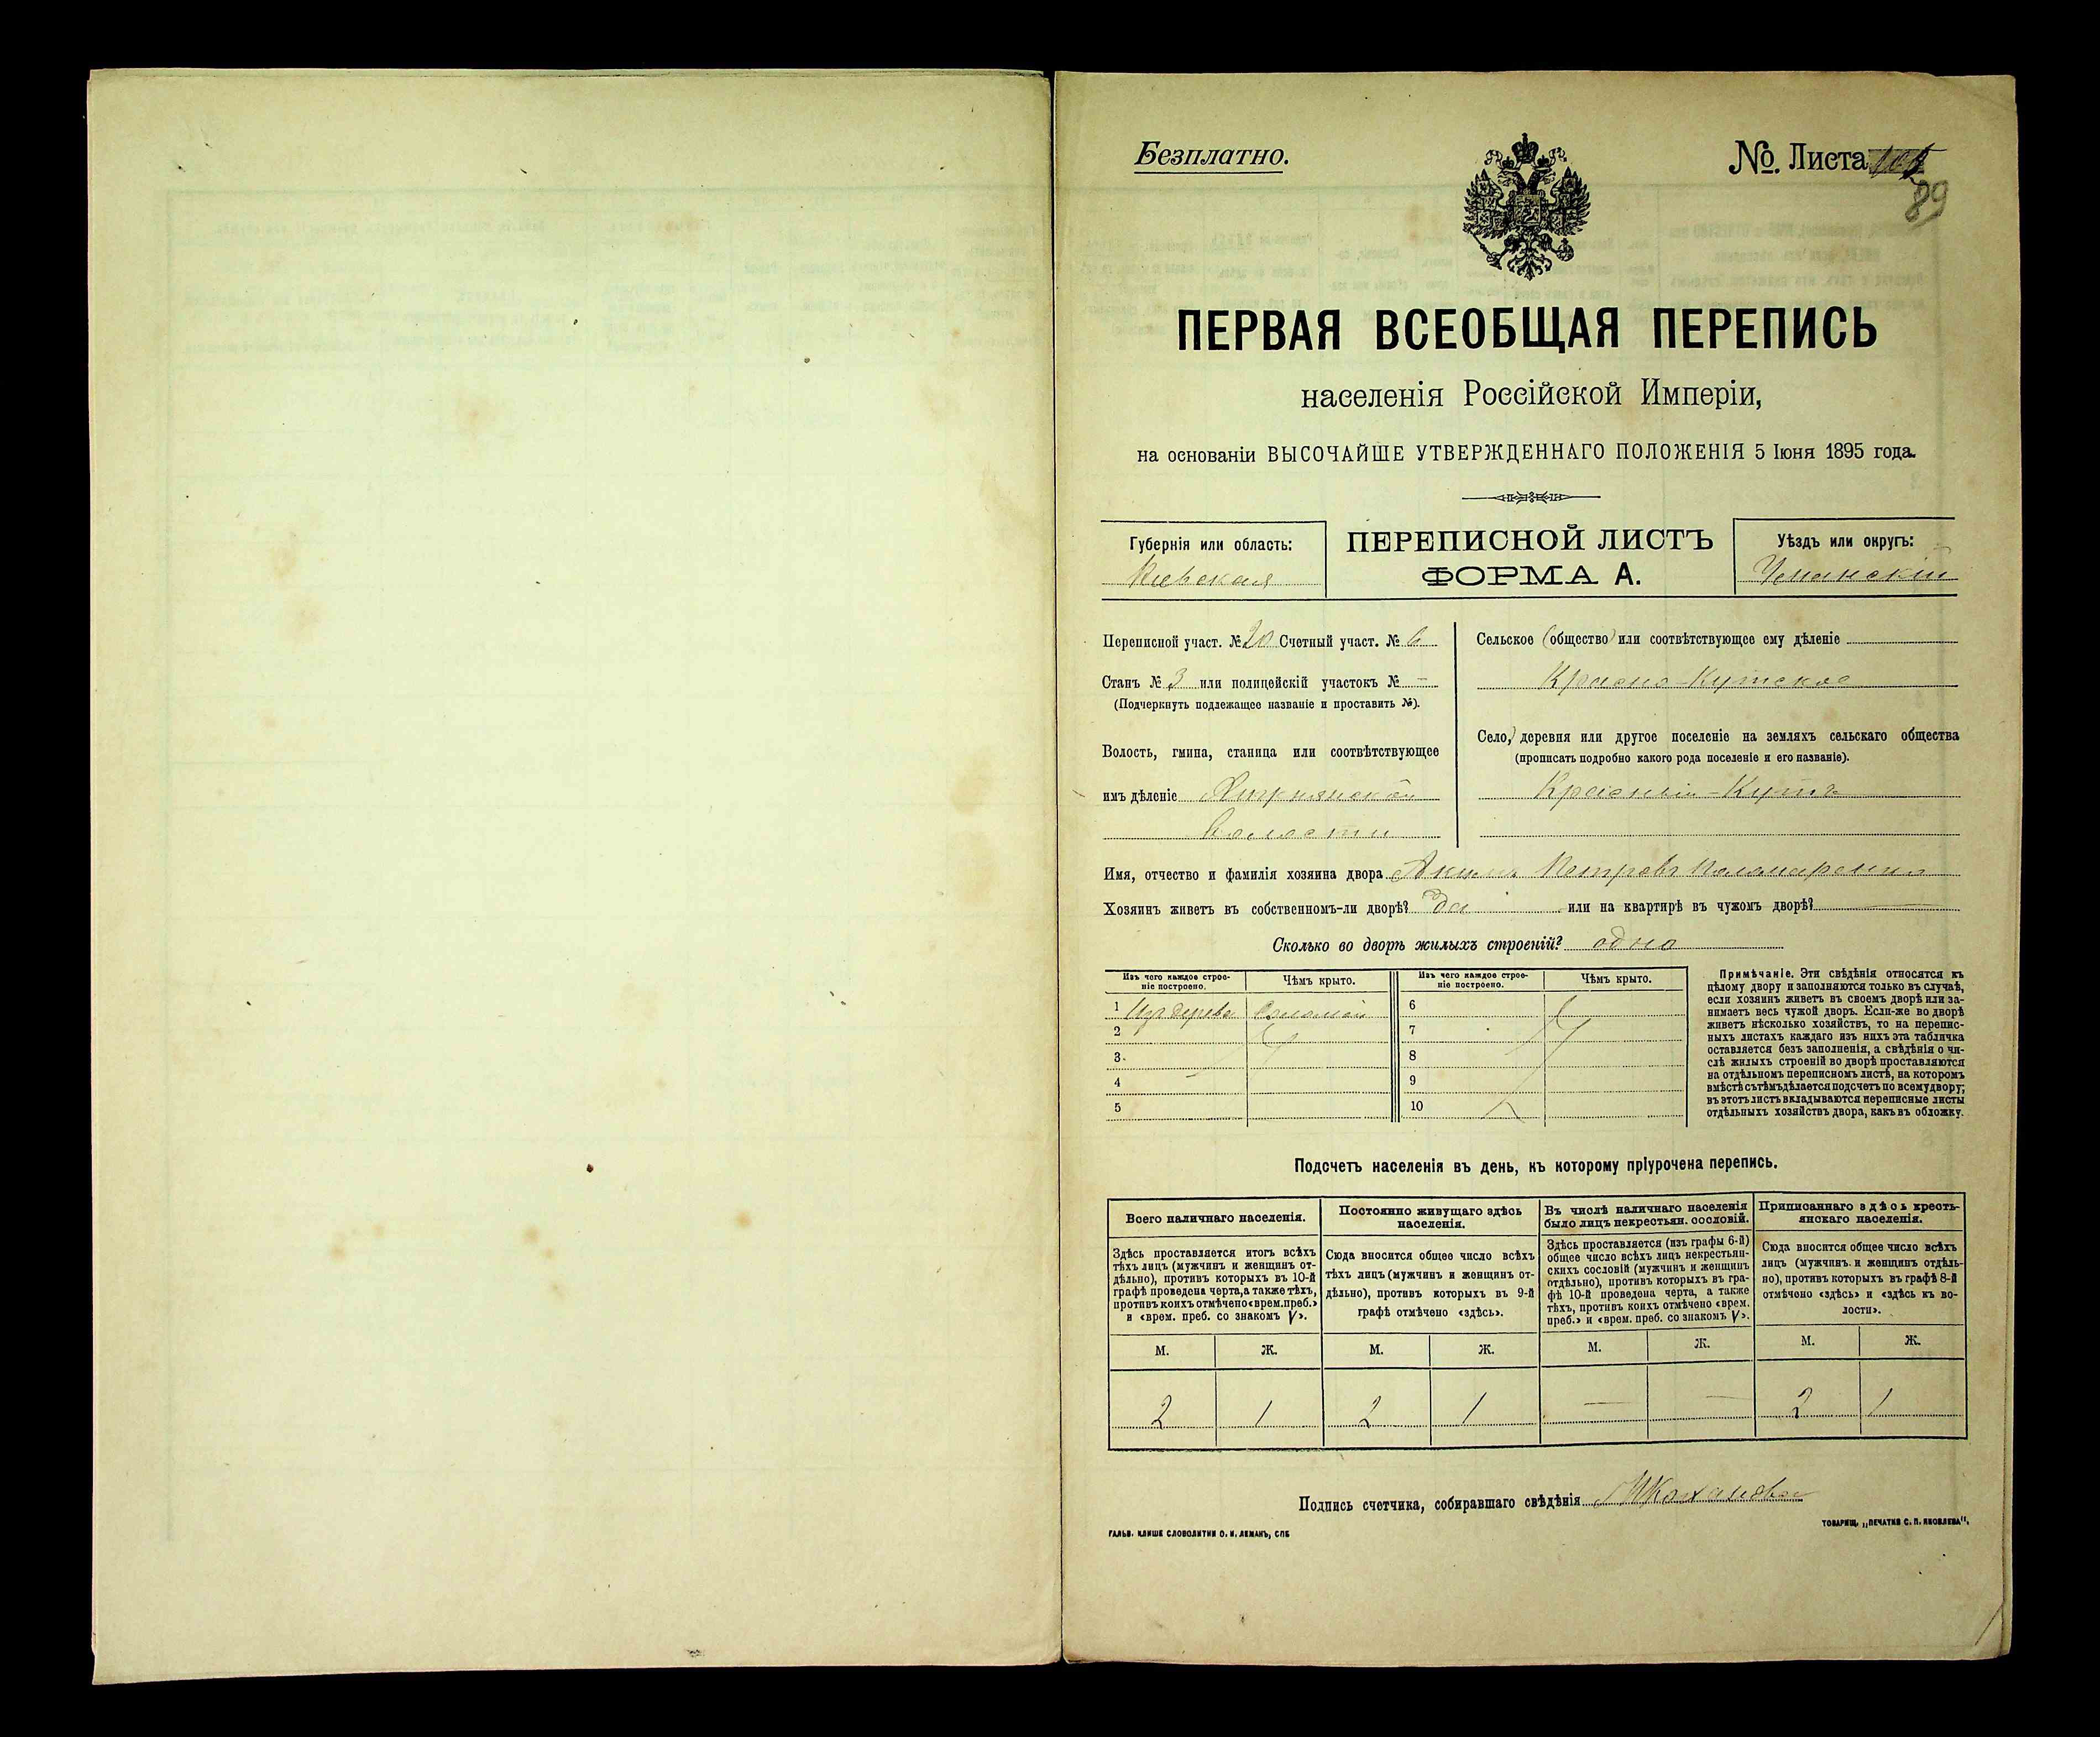 Безплатно.
№. Листа
89
ПЕРВАЯ ВСЕОБЩАЯ ПЕРЕПИСЬ
населенія Россійской Имперіи,
на основаніи ВЫСОЧАЙШЕ УТВЕРЖДЕННАГО ПОЛОЖЕНІЯ 5 Іюня 1895 года.
Губернія или область:
Кіевская
ПЕРЕПИСНОЙ ЛИСТЪ
ФОРМА А.
Уѣздъ или округъ:
Уманскій
Переписной участ. № 20 Счетный участ. № 6
Станъ № 3 или полицейскій участокъ № —
(Подчеркнуть подлежащее названіе и проставить №).
Волость, гмина, станица или соотвѣтствующее
имъ дѣленіе
Волости
Сельское (общество) или соотвѣтствующее ему дѣленіе
Красно-Кутское
Село, деревня или другое поселеніе на земляхъ сельскаго общества
(прописать подробно какого рода поселеніе и его названіе).
Красный-Кутъ
Имя, отчество и фамилія хозяина двора Акимъ Петровъ
Хозяинъ живетъ въ собственномъ-ли дворѣ? Да или на квартирѣ въ чужомъ дворѣ? —
Сколько во дворѣ жилыхъ строеній? одно
Изъ чего каждое строе-
ніе построено.
Чѣмъ крыто.
Изъ чего каждое строе-
ніе построено.
Чѣмъ крыто.
1 Изъ дерева Соломой 6
2 7
3 8
4 9
5 10
Примѣчаніе. Эти свѣдѣнія относятся къ
цѣлому двору и заполняются только въ случаѣ,
если хозяинъ живетъ въ своемъ дворѣ или за-
нимаетъ весь чужой дворъ. Если-же во дворѣ
живетъ нѣсколько хозяйствъ, то на перепис-
ныхъ листахъ каждаго изъ нихъ эта табличка
оставляется безъ заполненія, а свѣдѣнія о чи-
слѣ жилыхъ строеній во дворѣ проставляются
на отдѣльномъ переписномъ листѣ, на которомъ
вмѣстѣ съ тѣмъ дѣлается подсчетъ по всему двору;
въ этотъ листъ вкладываются переписные листы
отдѣльныхъ хозяйствъ двора, какъ въ обложку.
Подсчетъ населенія въ день, къ которому пріурочена перепись.
Всего наличнаго населенія.
Здѣсь проставляется итогъ всѣхъ
тѣхъ лицъ (мужчинъ и женщинъ от-
дѣльно), противъ которыхъ въ 10-й
графѣ проведена черта, а также тѣхъ,
противъ коихъ отмѣчено «врем. преб.»
и «врем. преб. со знакомъ V».
Постоянно живущаго здѣсь
населенія.
Сюда вносится общее число всѣхъ
тѣхъ лицъ (мужчинъ и женщинъ от-
дѣльно), противъ которыхъ въ 9-й
графѣ отмѣчено «здѣсь».
Въ числѣ наличнаго населенія
было лицъ некрестьян. сословій.
Здѣсь проставляется (изъ графы 6-й)
общее число всѣхъ лицъ некрестьян-
скихъ сословій (мужчинъ и женщинъ
отдѣльно), противъ которыхъ въ гра-
фѣ 10-й проведена черта, а также
тѣхъ, противъ коихъ отмѣчено «врем.
преб.» и «врем. преб. со знакомъ V».
Приписаннаго здѣсь кресть-
янскаго населенія.
Сюда вносится общее число всѣхъ
лицъ (мужчинъ и женщинъ отдѣль-
но), противъ которыхъ въ графѣ 8-й
отмѣчено «здѣсь» и «здѣсь къ во-
лости».
М. Ж. М. Ж. М. Ж. М. Ж.
2 1 2 1 — — 2 1
Подпись счетчика, собиравшаго свѣдѣнія
ГАЛЬВ. КЛИШЕ СЛОВОЛИТНИ О. И. ЛЕМАНЪ, СПБ
ТОВАРИЩ. „ПЕЧАТНЯ С. П. ЯКОВЛЕВА“.